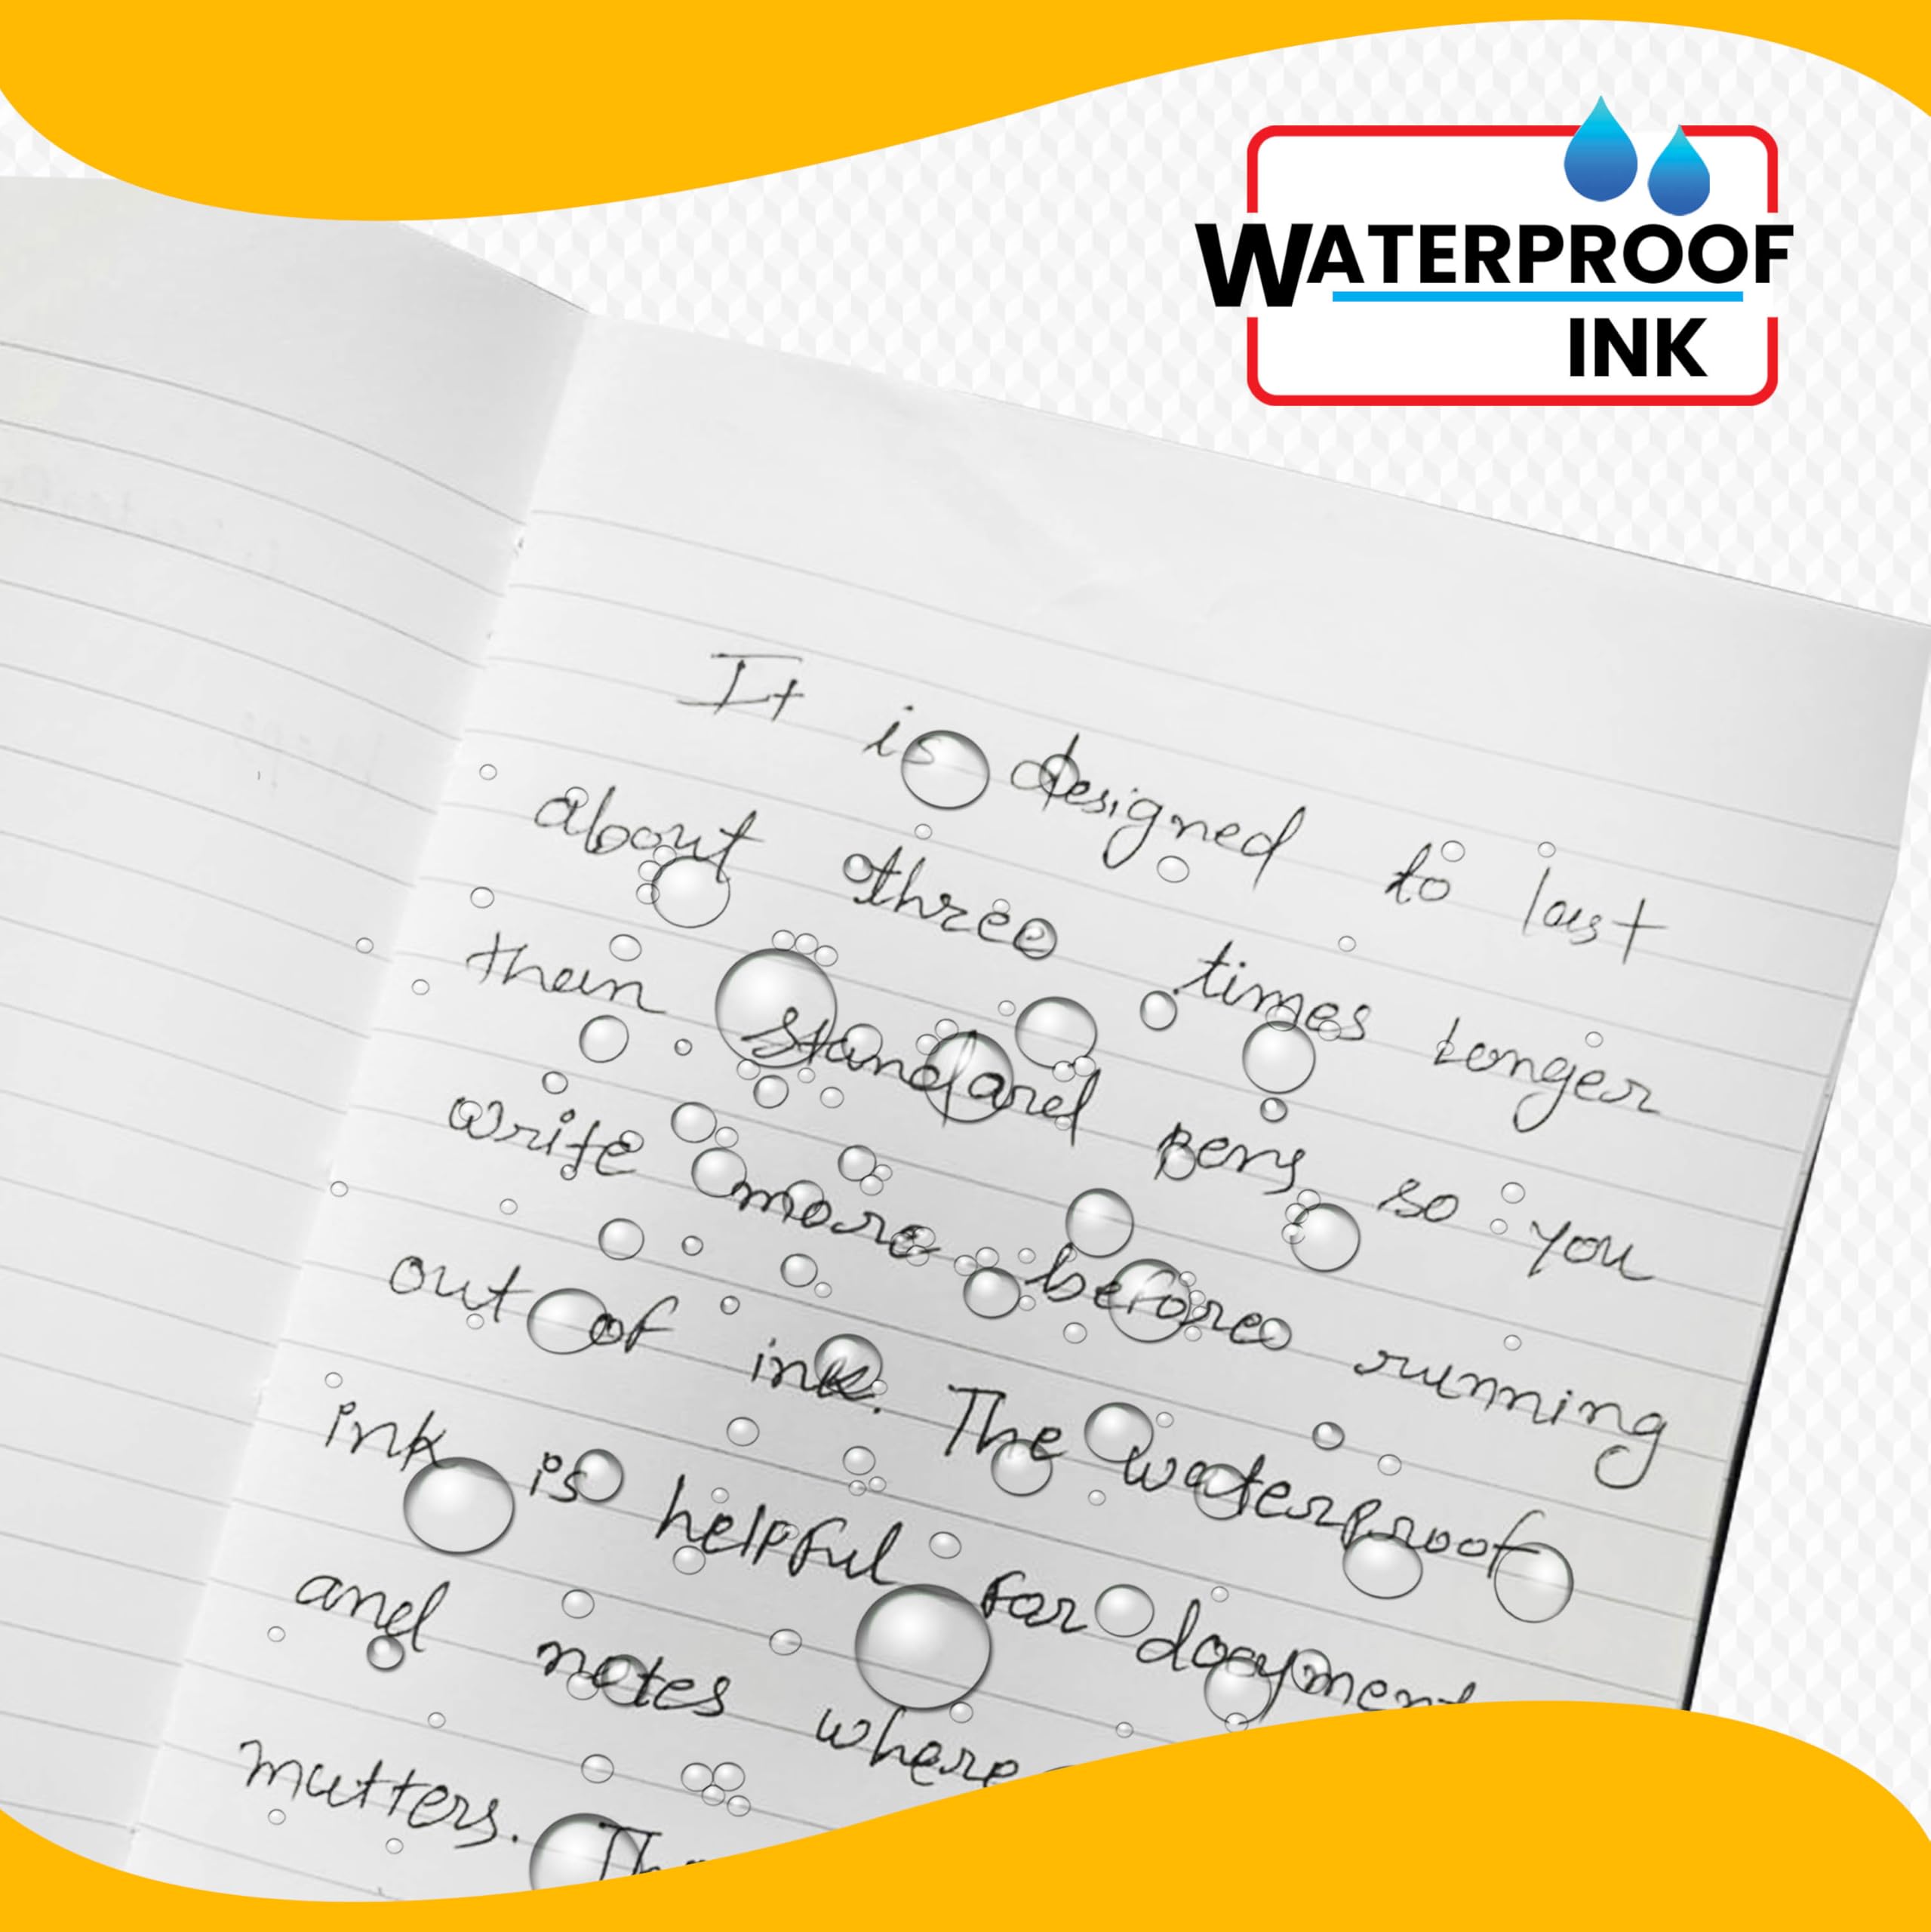 WATERPROOF
INK
It is designed to last
about three times longer
than standard pens so you
write more before running
out of ink. The waterproof
ink is helpful for document
and notes where
matters. The